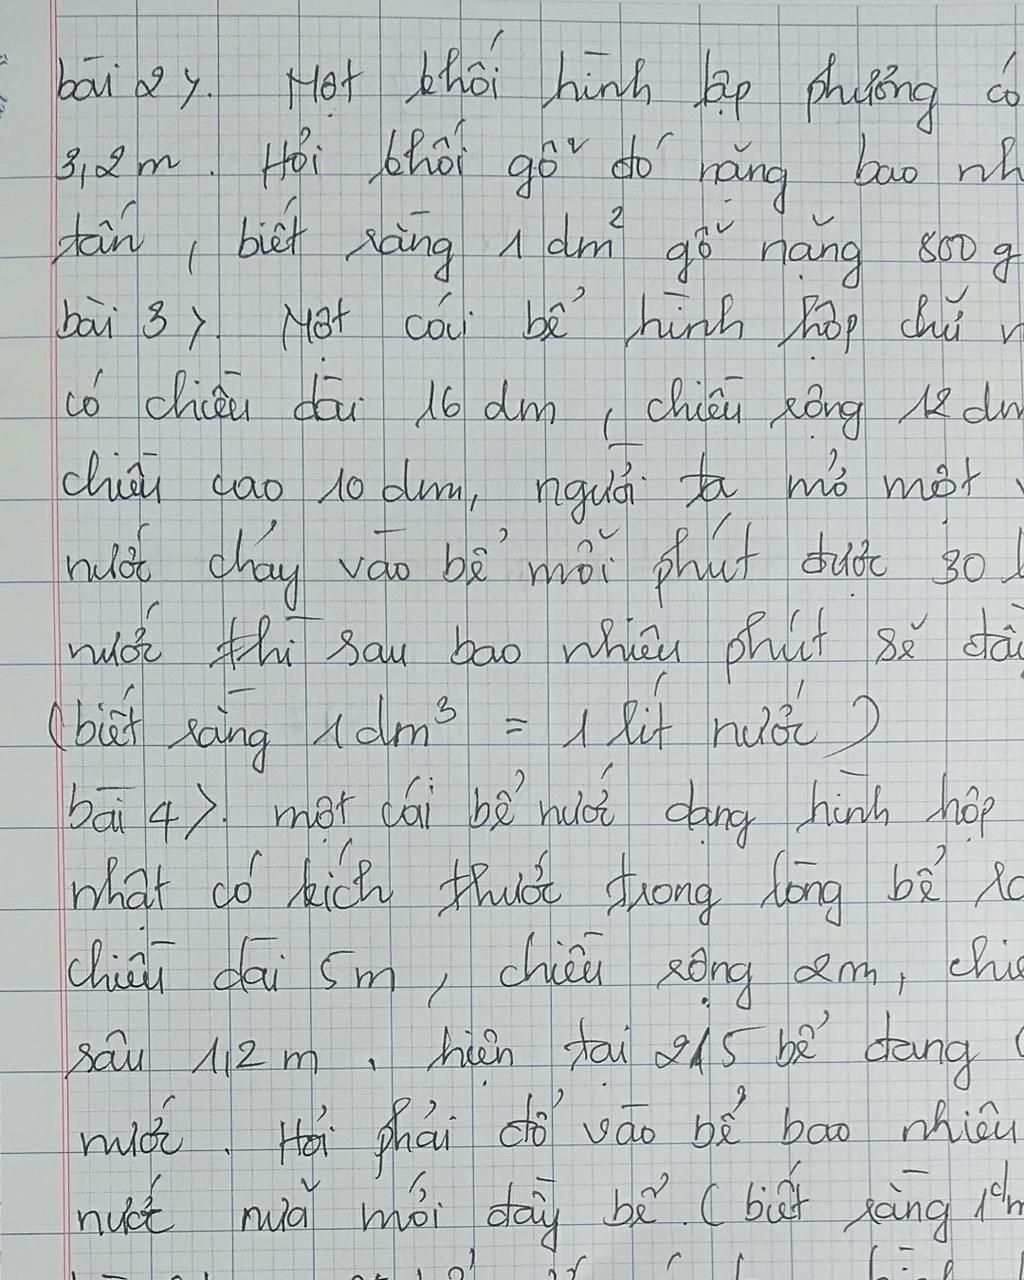 bài 2>. Một khối hình lập phương có
3,2 m. Hỏi khối gỗ đó nặng bao nh
tấn, biết rằng 1 dm² gỗ nặng 800 g
bài 3>. Một cái bể hình hộp chữ n
có chiều dài 16 dm, chiều rộng 12 dm
chiều cao 10 dm, người ta mở một v
nước chảy vào bể mỗi phút được 30 l
nước thì sau bao nhiêu phút sẽ đầ
(biết rằng 1 dm³ = 1 lít nước)
bài 4>. một cái bể nước dạng hình hộp
nhật có kích thước trong lòng bể
chiều dài 5m, chiều rộng 2m, chiề
sâu 1,2 m, hiện tại 2/5 bể đang
nước. Hỏi phải đổ vào bể bao nhiêu
nước nữa mới đầy bể. (biết rằng 1dm